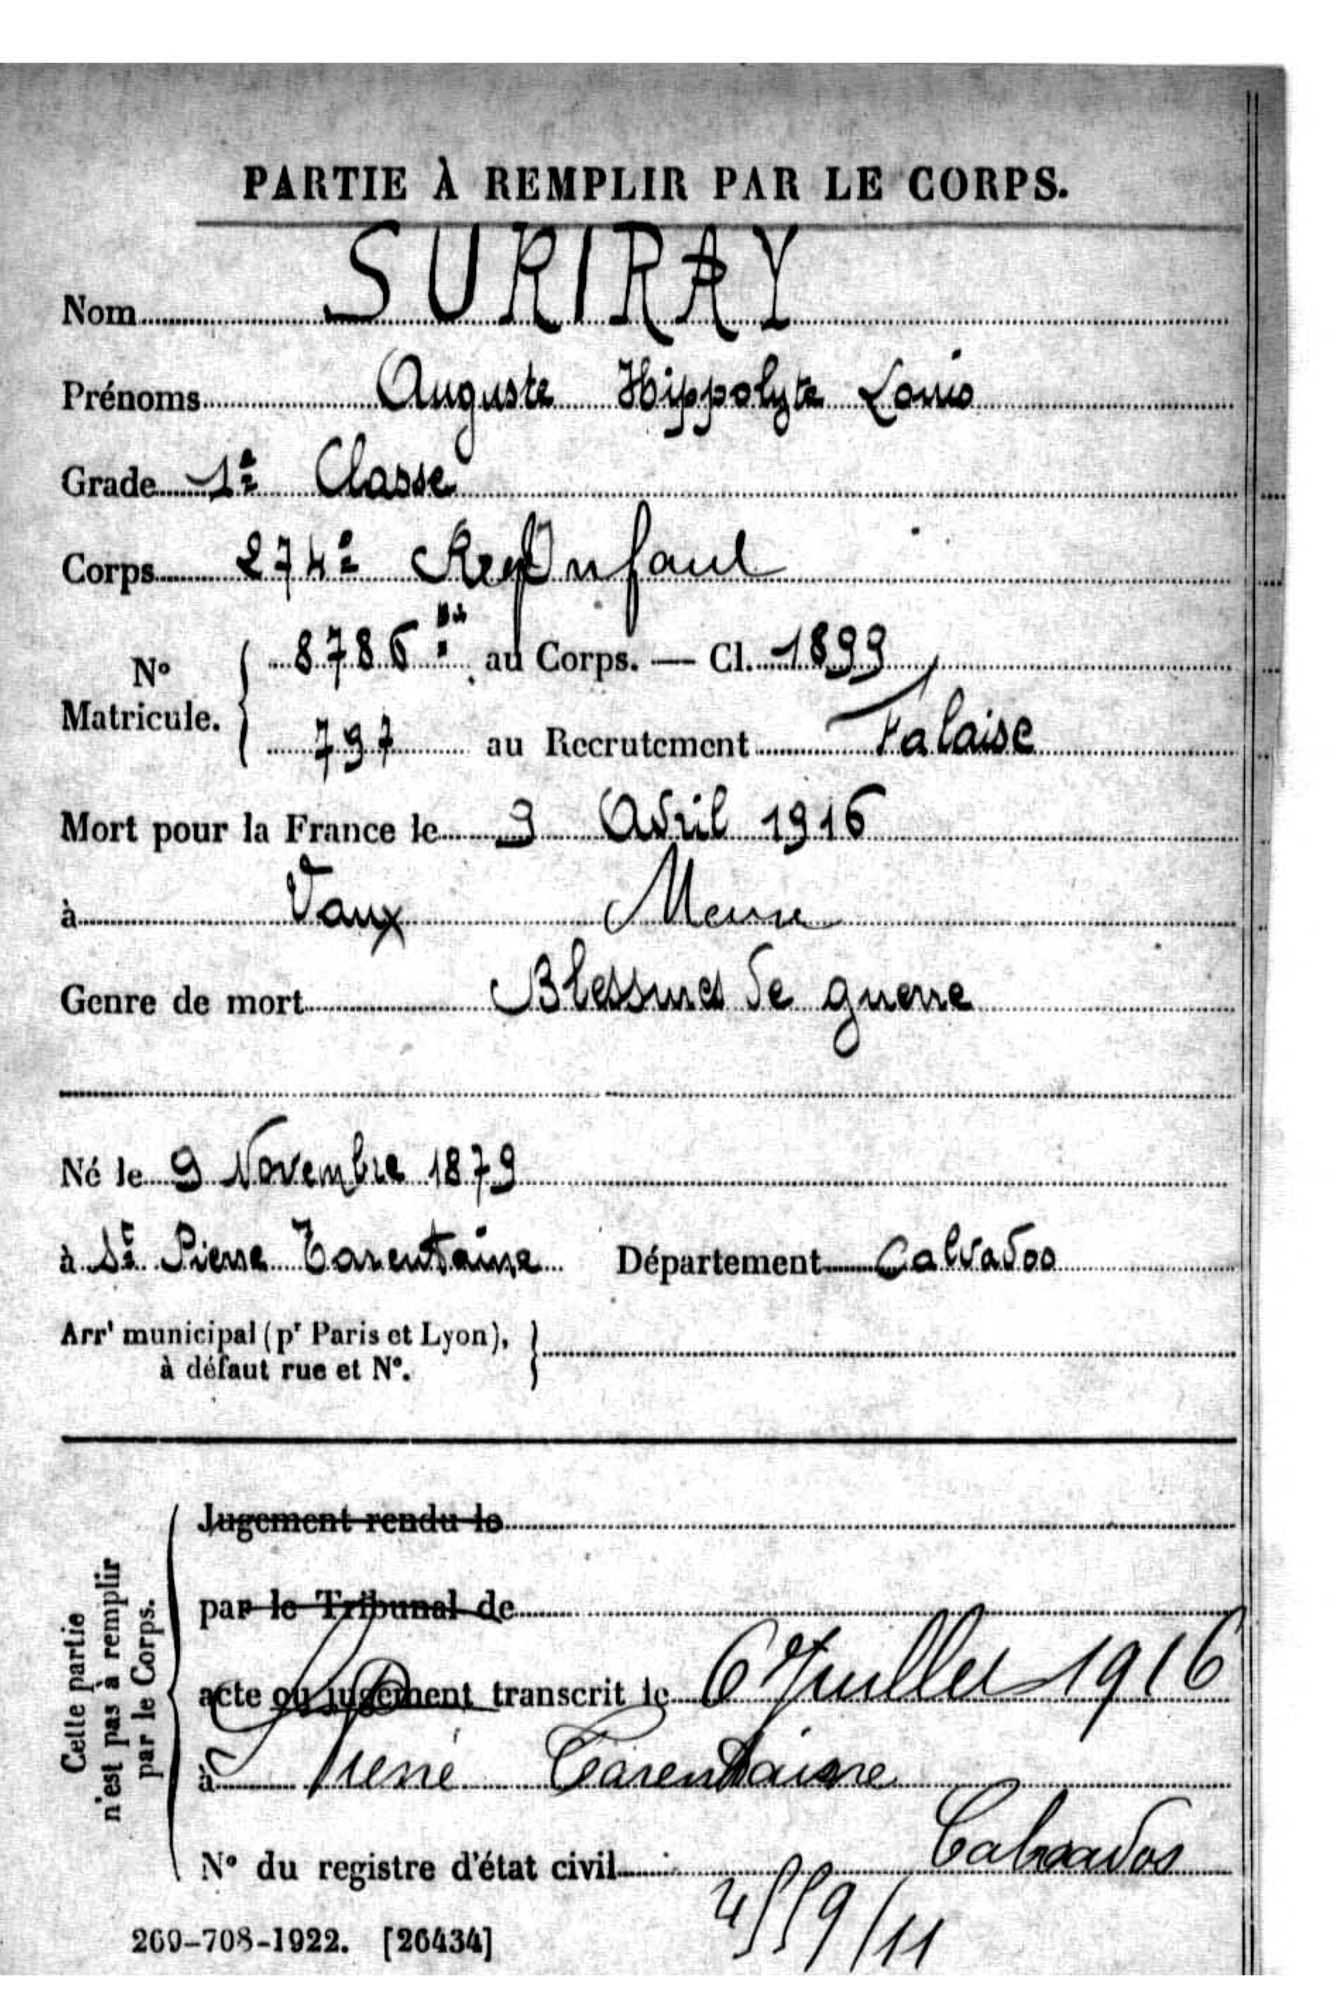 PARTIE À REMPLIR PAR LE CORPS.
Nom SURIRAY
Prénoms Auguste Hippolyte Louis
Grade 1e Classe
Corps 274e Reg Infant
N° Matricule. 8786 au Corps. — Cl. 1899
797 au Recrutement Falaise
Mort pour la France le 9 Avril 1916
à Vaux Meuse
Genre de mort Blessures de guerre
Né le 9 Novembre 1879
à St Pierre Tarentaine Département Calvados
Arrt municipal (pr Paris et Lyon),
à défaut rue et N°.
Cette partie
n'est pas à remplir
par le Corps.
Jugement rendu le
par le Tribunal de
acte ou jugement transcrit le 6 Juillet 1916
à St Pierre Tarentaine
Calvados
N° du registre d'état civil
269-708-1922. [26434]